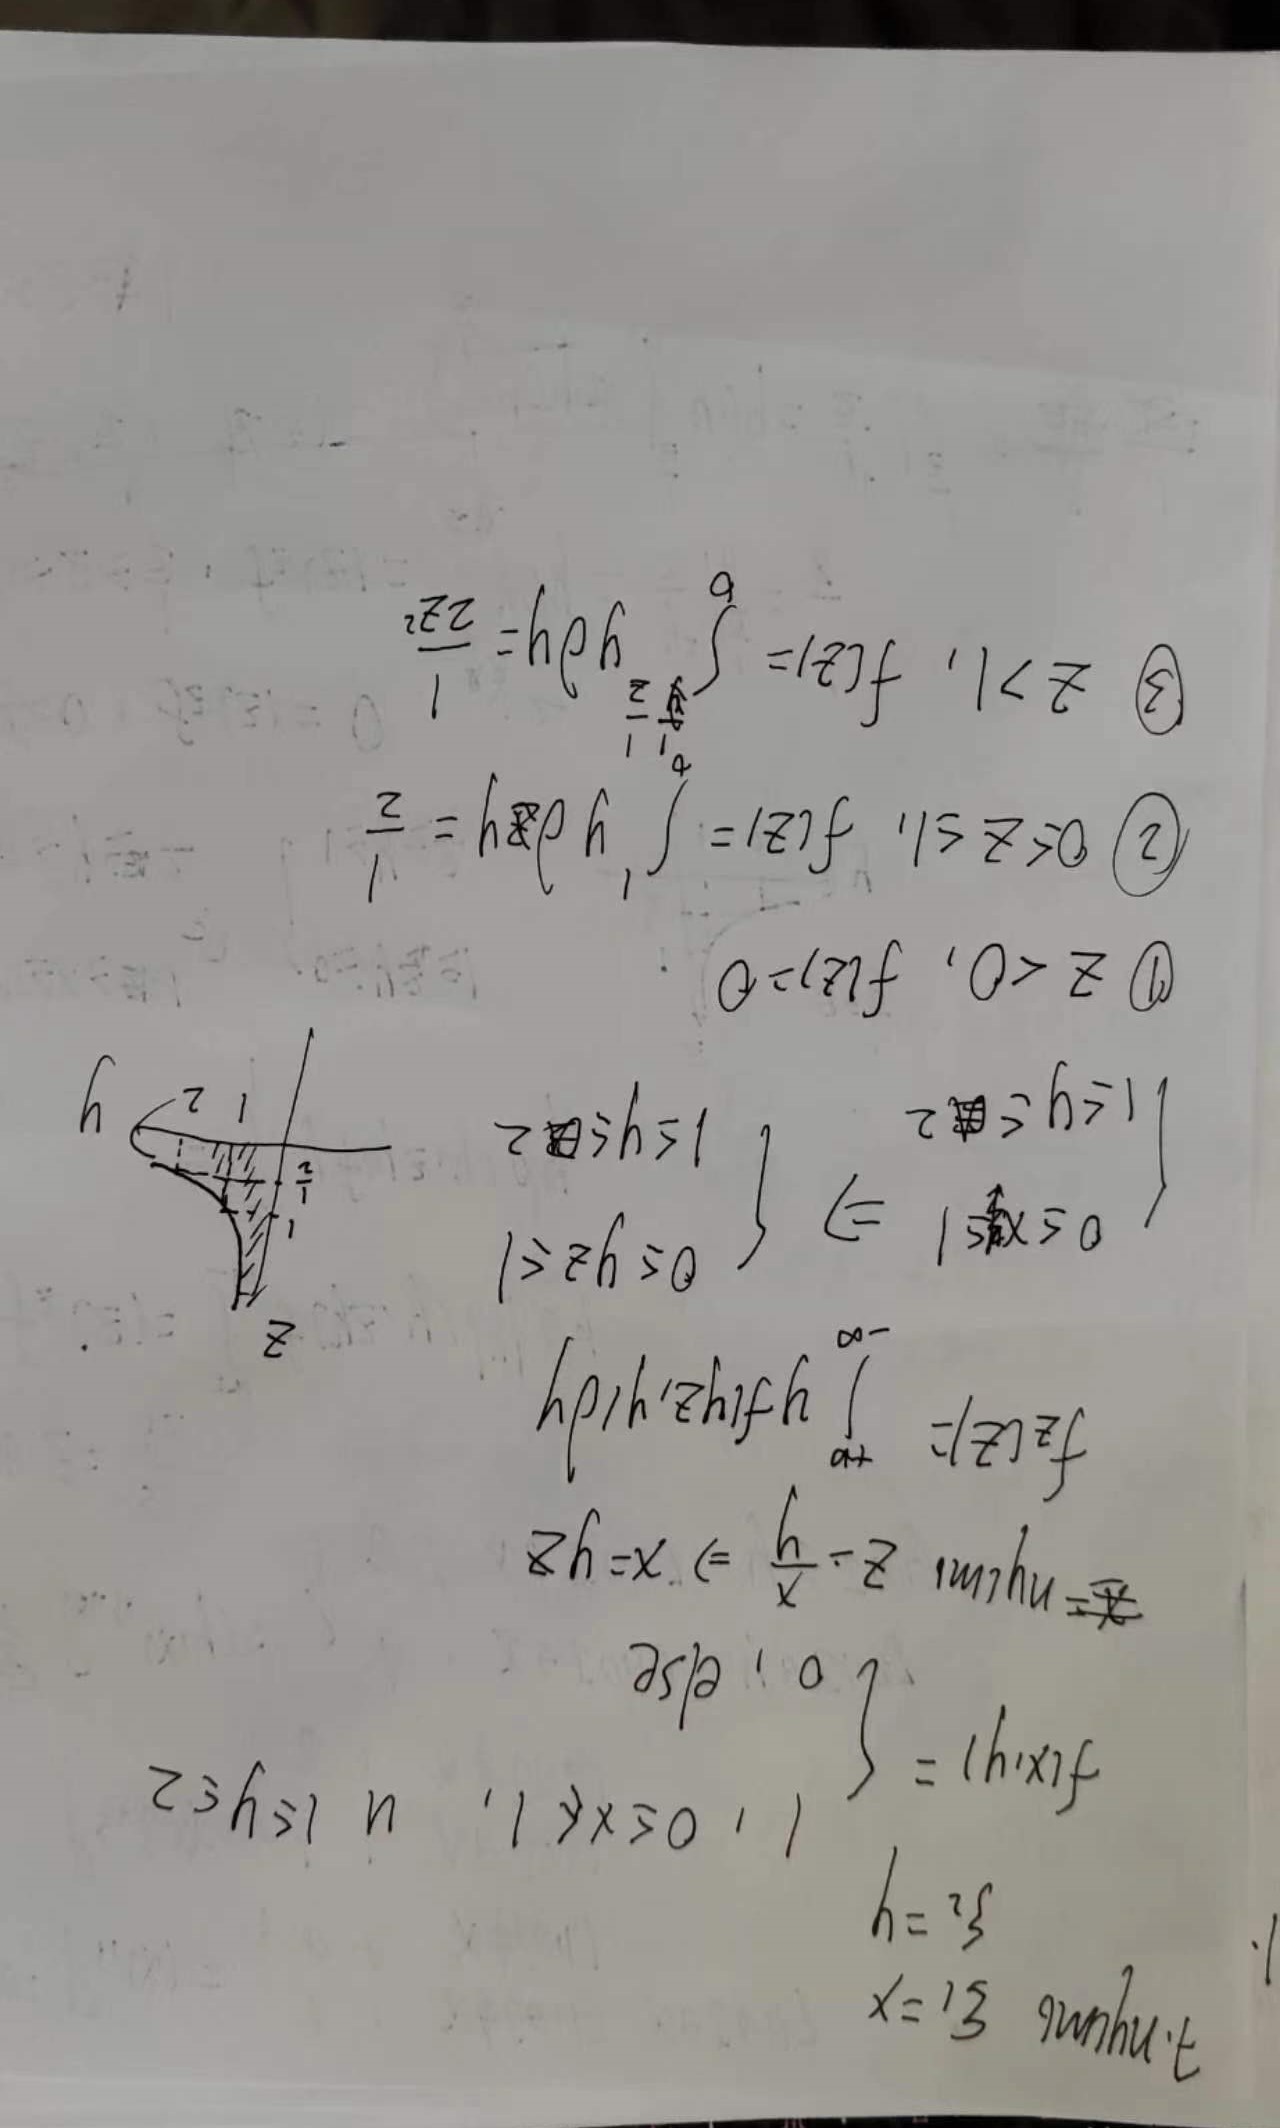 7. пусть ξ₁ = x
1.
ξ₂ = y
f(x,y) = { 1, 0 ≤ x ≤ 1, и 1 ≤ y ≤ 2
0, else
пусть z = x/y ⇒ x = yz
f_z(z) = ∫_{-∞}^{+∞} y f(yz, y) dy
{ 0 ≤ x ≤ 1 ⇒ { 0 ≤ yz ≤ 1
1 ≤ y ≤ 2 1 ≤ y ≤ 2
z
1
1/2
1 2 y
① z < 0, f(z) = 0
② 0 ≤ z ≤ 1, f(z) = ∫_0^1 y dy = 1/2
③ z > 1, f(z) = ∫_0^{1/z} y dy = 1/2z²